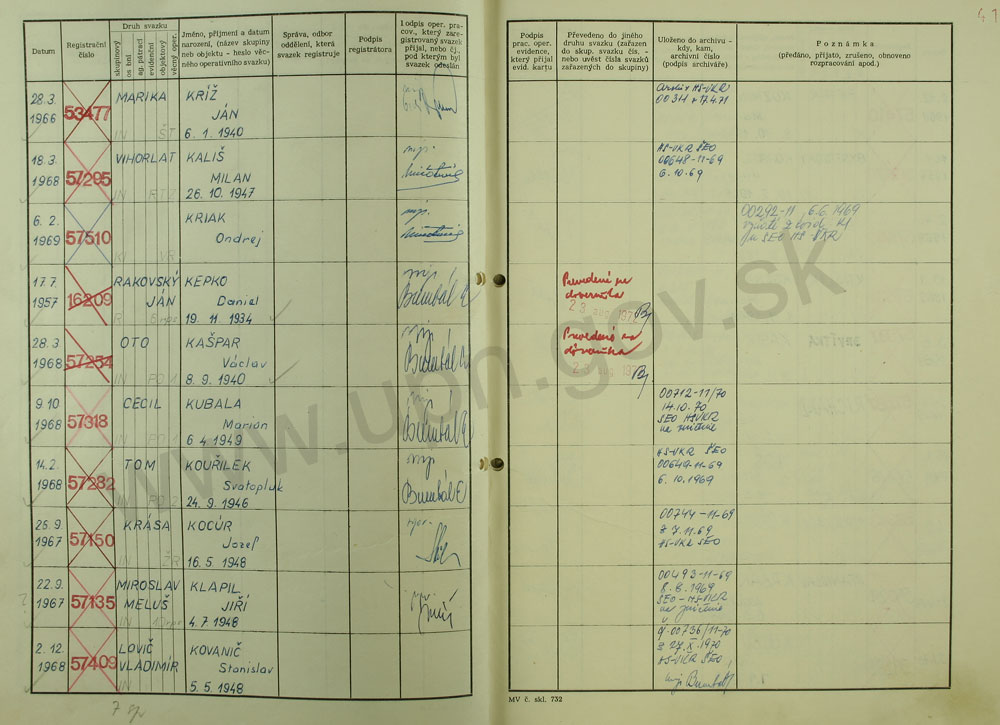 41
Datum
Registrační číslo
Druh svazku
skupinový
osobní
ag. pátrací
evidenční
objektový
věcný oper.
Jméno, příjmení a datum
narození, (název skupiny
neb objektu - heslo věc-
ného operativního svazku)
Správa, odbor
oddělení, která
svazek registruje
Podpis
registrátora
Podpis oper. prac-
ov., který zare-
gistrovaný svazek
přijal, nebo čj.,
pod kterým byl
svazek odeslán
Podpis
prac. oper.
evidence,
který přijal
evid. kartu
Převedeno do jiného
druhu svazku (zařazen
do skup. svazku čís. -
nebo uvést čísla svazků
zařazených do skupiny)
Uloženo do archivu -
kdy, kam,
archivní číslo
(podpis archiváře)
Poznámka
(předáno, přijato, zrušeno, obnoveno
rozpracování apod.)
28.3. 1966 53477 MARIKA KRÍŽ
JÁN
IN ŠT 6. 1. 1940
00311 17.4.71
18.3. 1968 57295 VIHORLAT KALIŠ
MILAN
IN 26. 10. 1947
mjr.
HS-VKR SEO
00648-11-69
6.10.69
6. 2. 1969 57510 KRIAK
Ondrej
K VR
mjr.
00292-11 6.6.1969
SEO HS-VKR
17.7. 1957 16209 RAKOVSKÝ JÁN KEPKO
Daniel
R 19. 11. 1934
mjr. Bumbál E
Prevedené na
dôverníka
23 aug 1972
28.3 1968 57254 OTO KAŠPAR
Václav
IN PO 1 8. 9. 1940
mjr. Bumbál
Prevedené na
dôverníka
23 aug 1972
9.10 1968 57318 CECIL KUBALA
Marion
IN PO 1 6 4 1949
mjr. Bumbál E
00712-11/70
14.10.70
SEO HS-VKR
na zničenie
14.2. 1968 57282 TOM KOUŘILEK
Svatopluk
IN PO 2 24. 9. 1946
mjr. Bumbál E
HS-VKR SEO
00649-11-69
6.10.1969
26. 9. 1967 57150 KRÁSA KOCÚR
Jozef
IN ŽR 16. 5. 1948
00744-11-69
z 7.11.69
HS-VKR SEO
22.9. 1967 57135 MIROSLAV MELUŠ KLAPIL
JIŘÍ
IN 4. 7 1948
00493-11-69
8.8.1969
SEO-HS-VKR
na zničenie
2. 12. 1968 57409 LOVIČ VLADIMÍR KOVANIČ
Stanislav
K 5. 5. 1948
č. 00736/11-70
z 27.X.1970
HS-VKR SEO
mjr Bumbál
MV č. skl. 732
www.upn.gov.sk